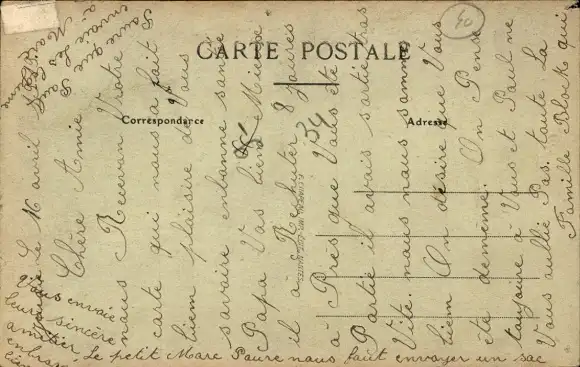 CARTE POSTALE
Correspondance
Adresse
40
Le 16 avril
Chère Amie
nous Recevon Votre
carte qui nous a fait
bien plaisire de Vous
savoire en bonne santé
Papa Vas bien Mieux
il à Rechuter 8 jours
à Près que Vous ête
Partie il avais sortie tros
Vite. nous nous somme
bien On désire que Vous
ête de meme. On Pense
toujoire à Vous et Paul ne
Vous oublie Pas. toute La
Famille Block qui
Vous envoie
leur sincère
amitier
Le petit Marc Saure nous faut envoyer un sac